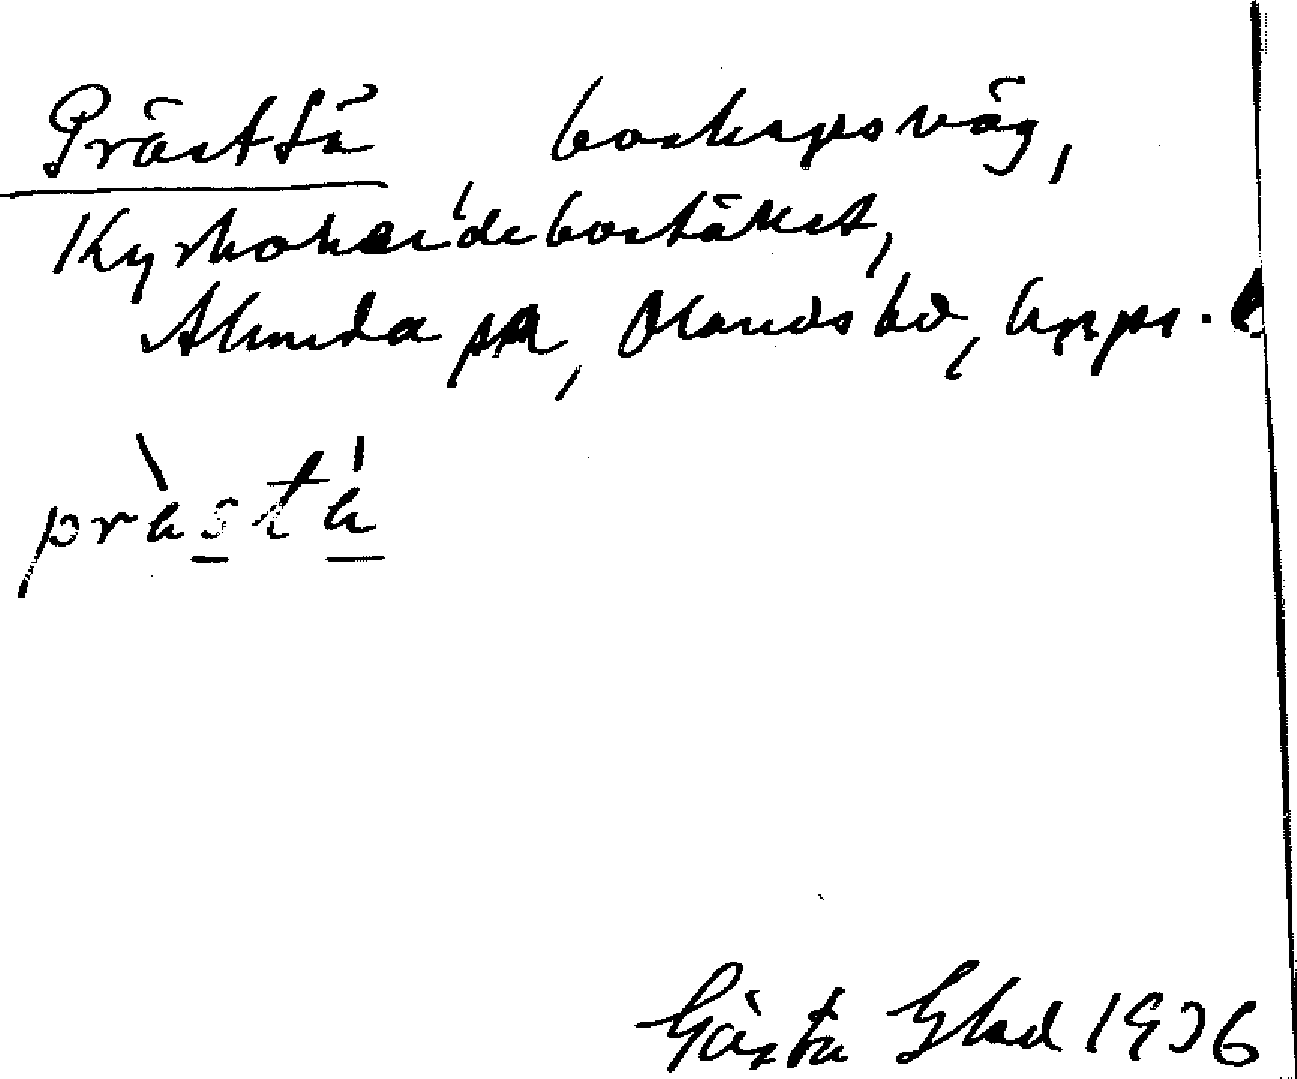 Prästtä boskapsväg,
Kyrkoherdebostället,
Alunda sn, Olands hd, Upps. l
prästä
Gösta Glad 1936